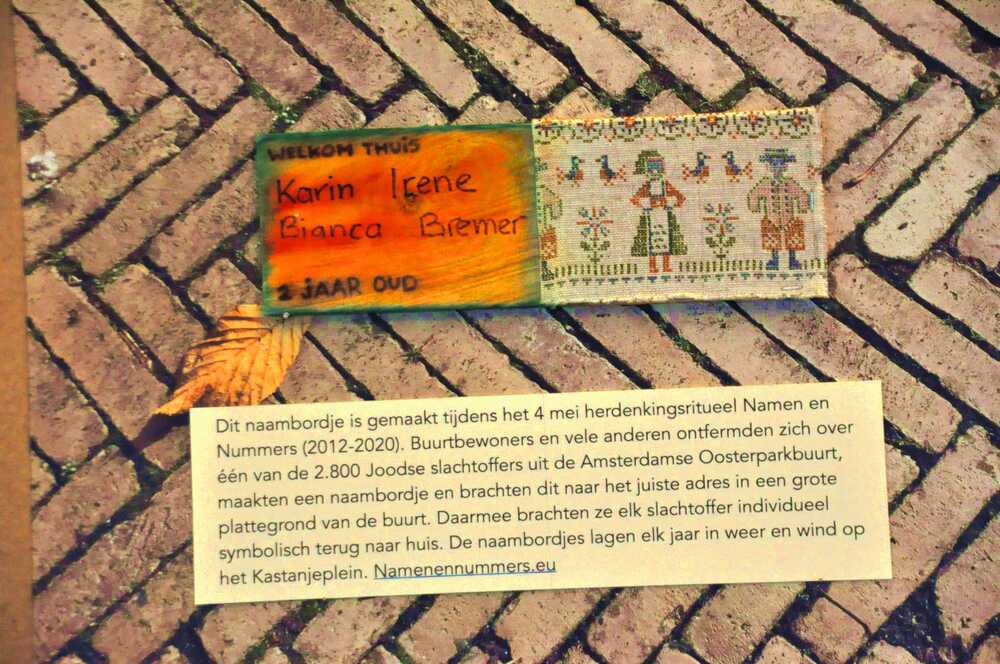 WELKOM THUIS
Karin Irene
Bianca Bremer
2 JAAR OUD
Dit naambordje is gemaakt tijdens het 4 mei herdenkingsritueel Namen en
Nummers (2012-2020). Buurtbewoners en vele anderen ontfermden zich over
één van de 2.800 Joodse slachtoffers uit de Amsterdamse Oosterparkbuurt,
maakten een naambordje en brachten dit naar het juiste adres in een grote
plattegrond van de buurt. Daarmee brachten ze elk slachtoffer individueel
symbolisch terug naar huis. De naambordjes lagen elk jaar in weer en wind op
het Kastanjeplein. Namenennummers.eu